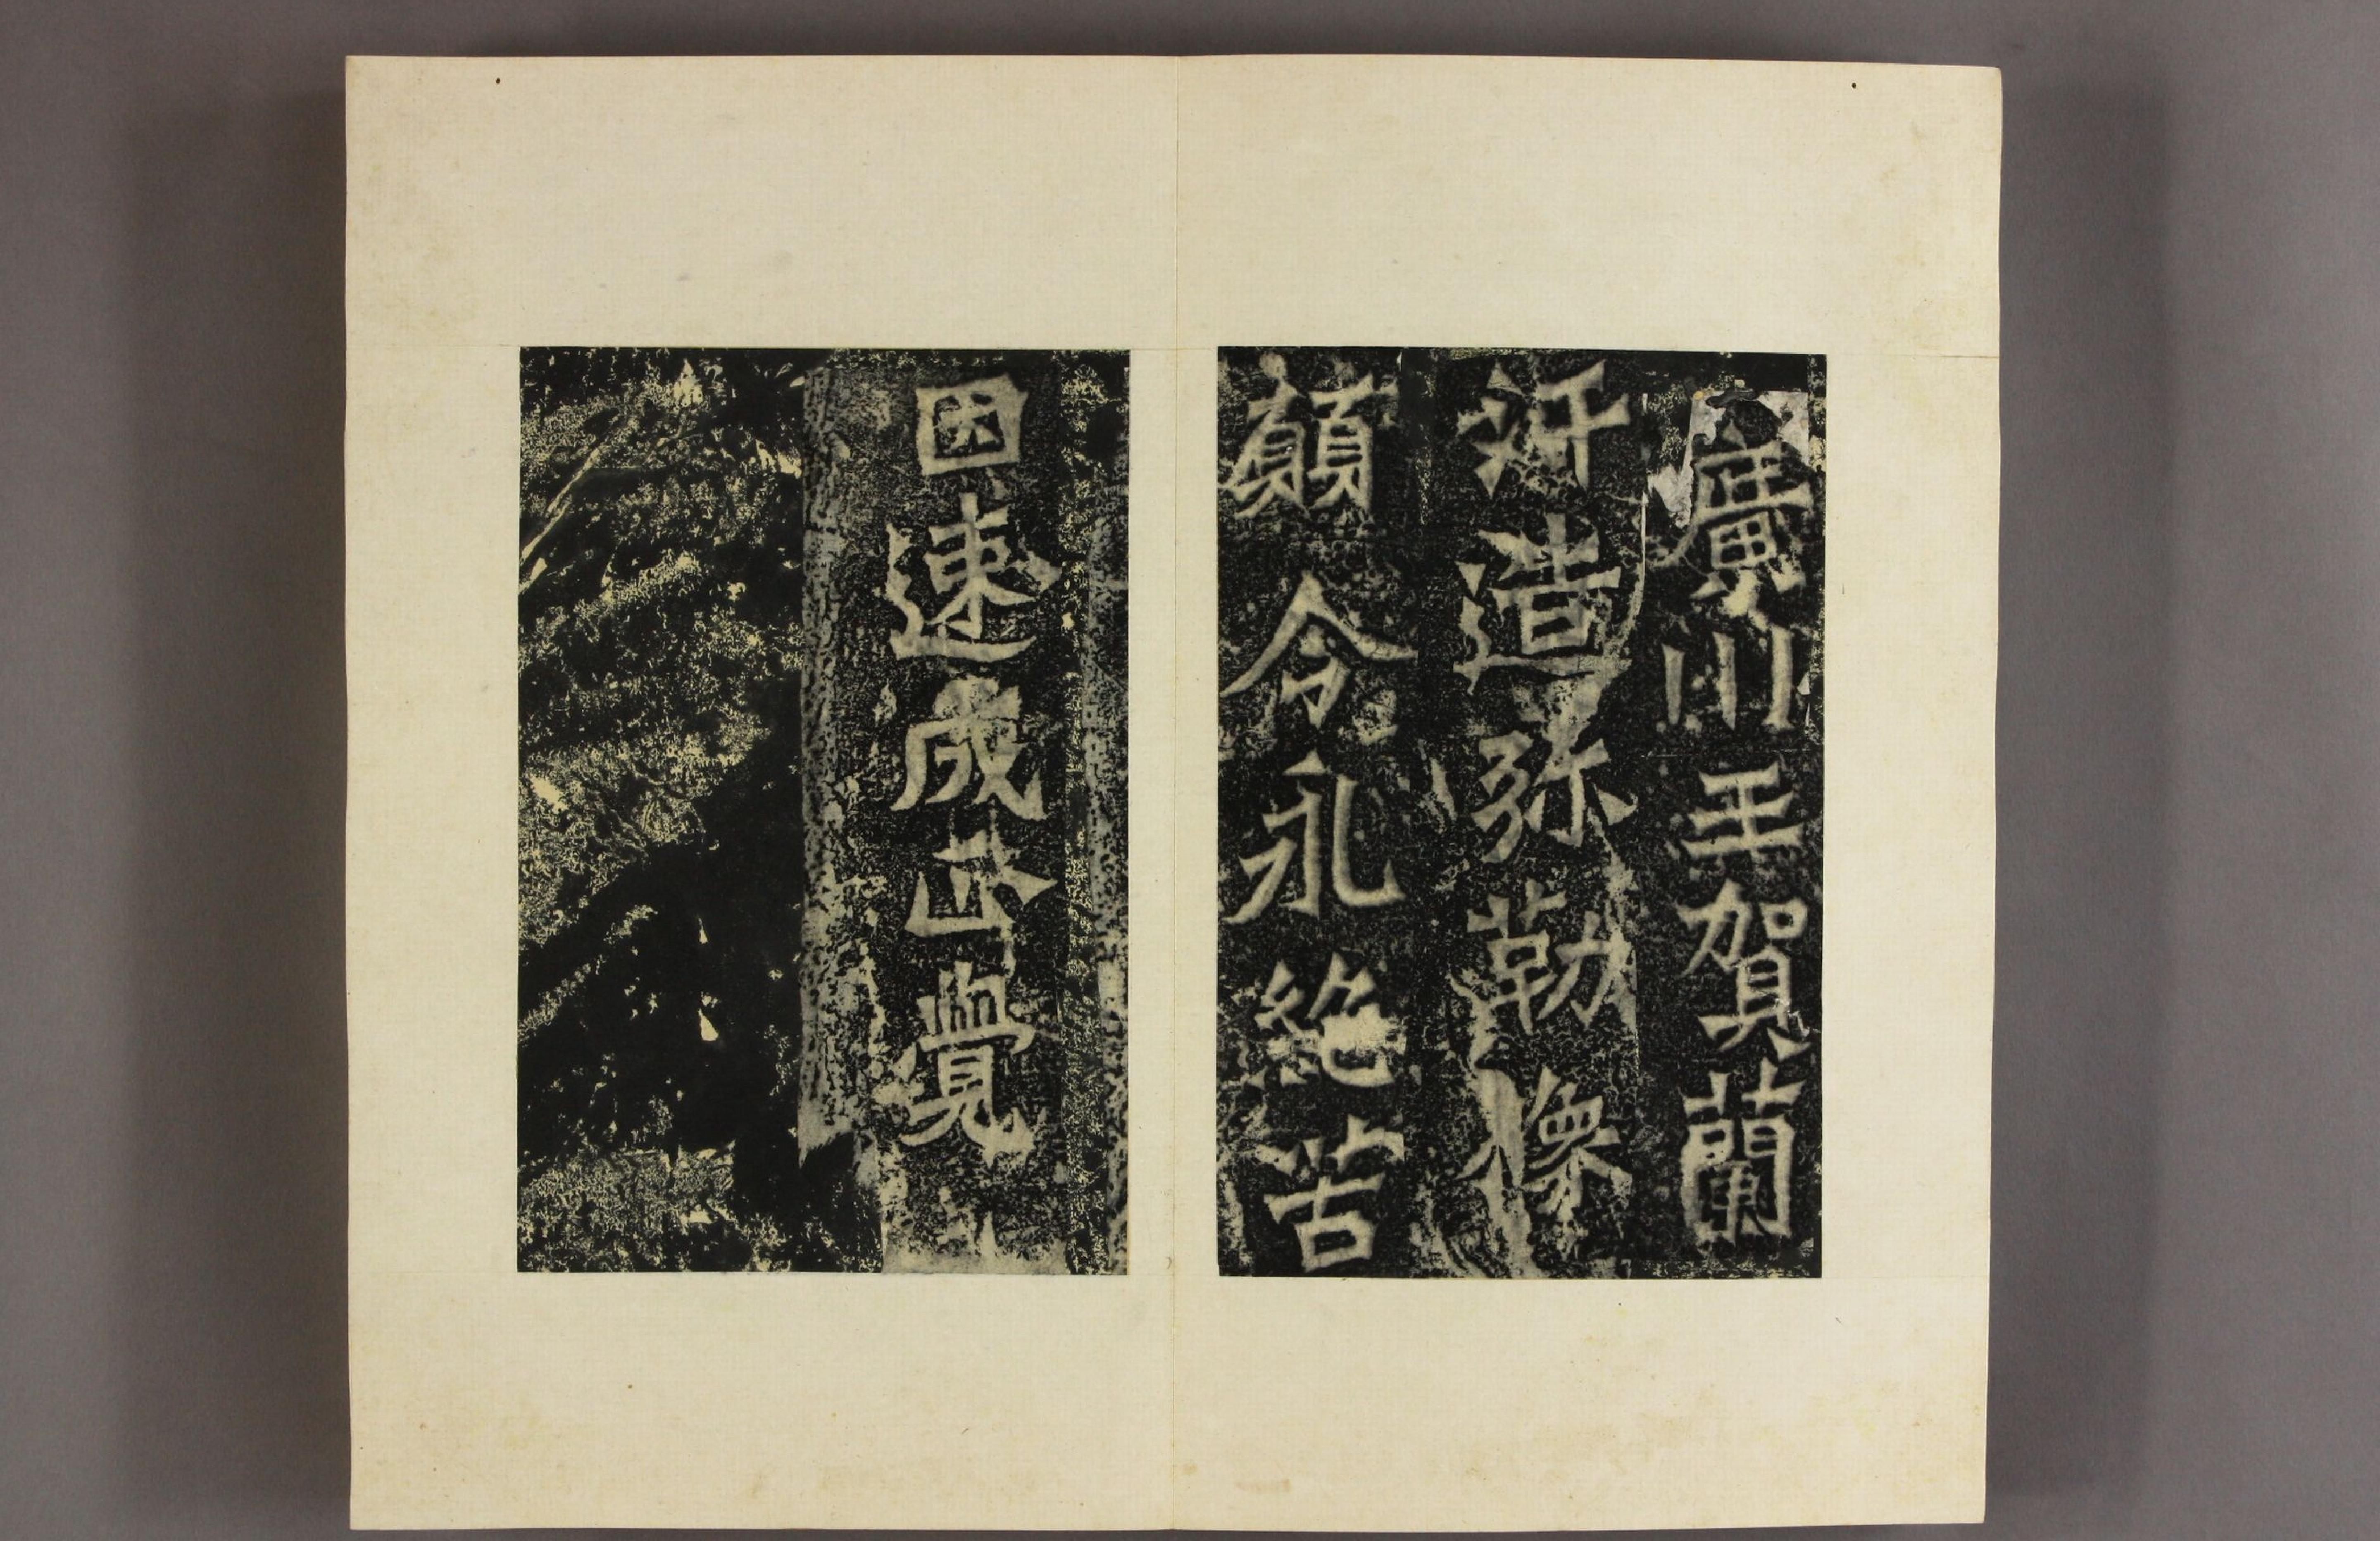 廣川王賀蘭
汗造弥勒像
願令永絶苦
因速成正覺